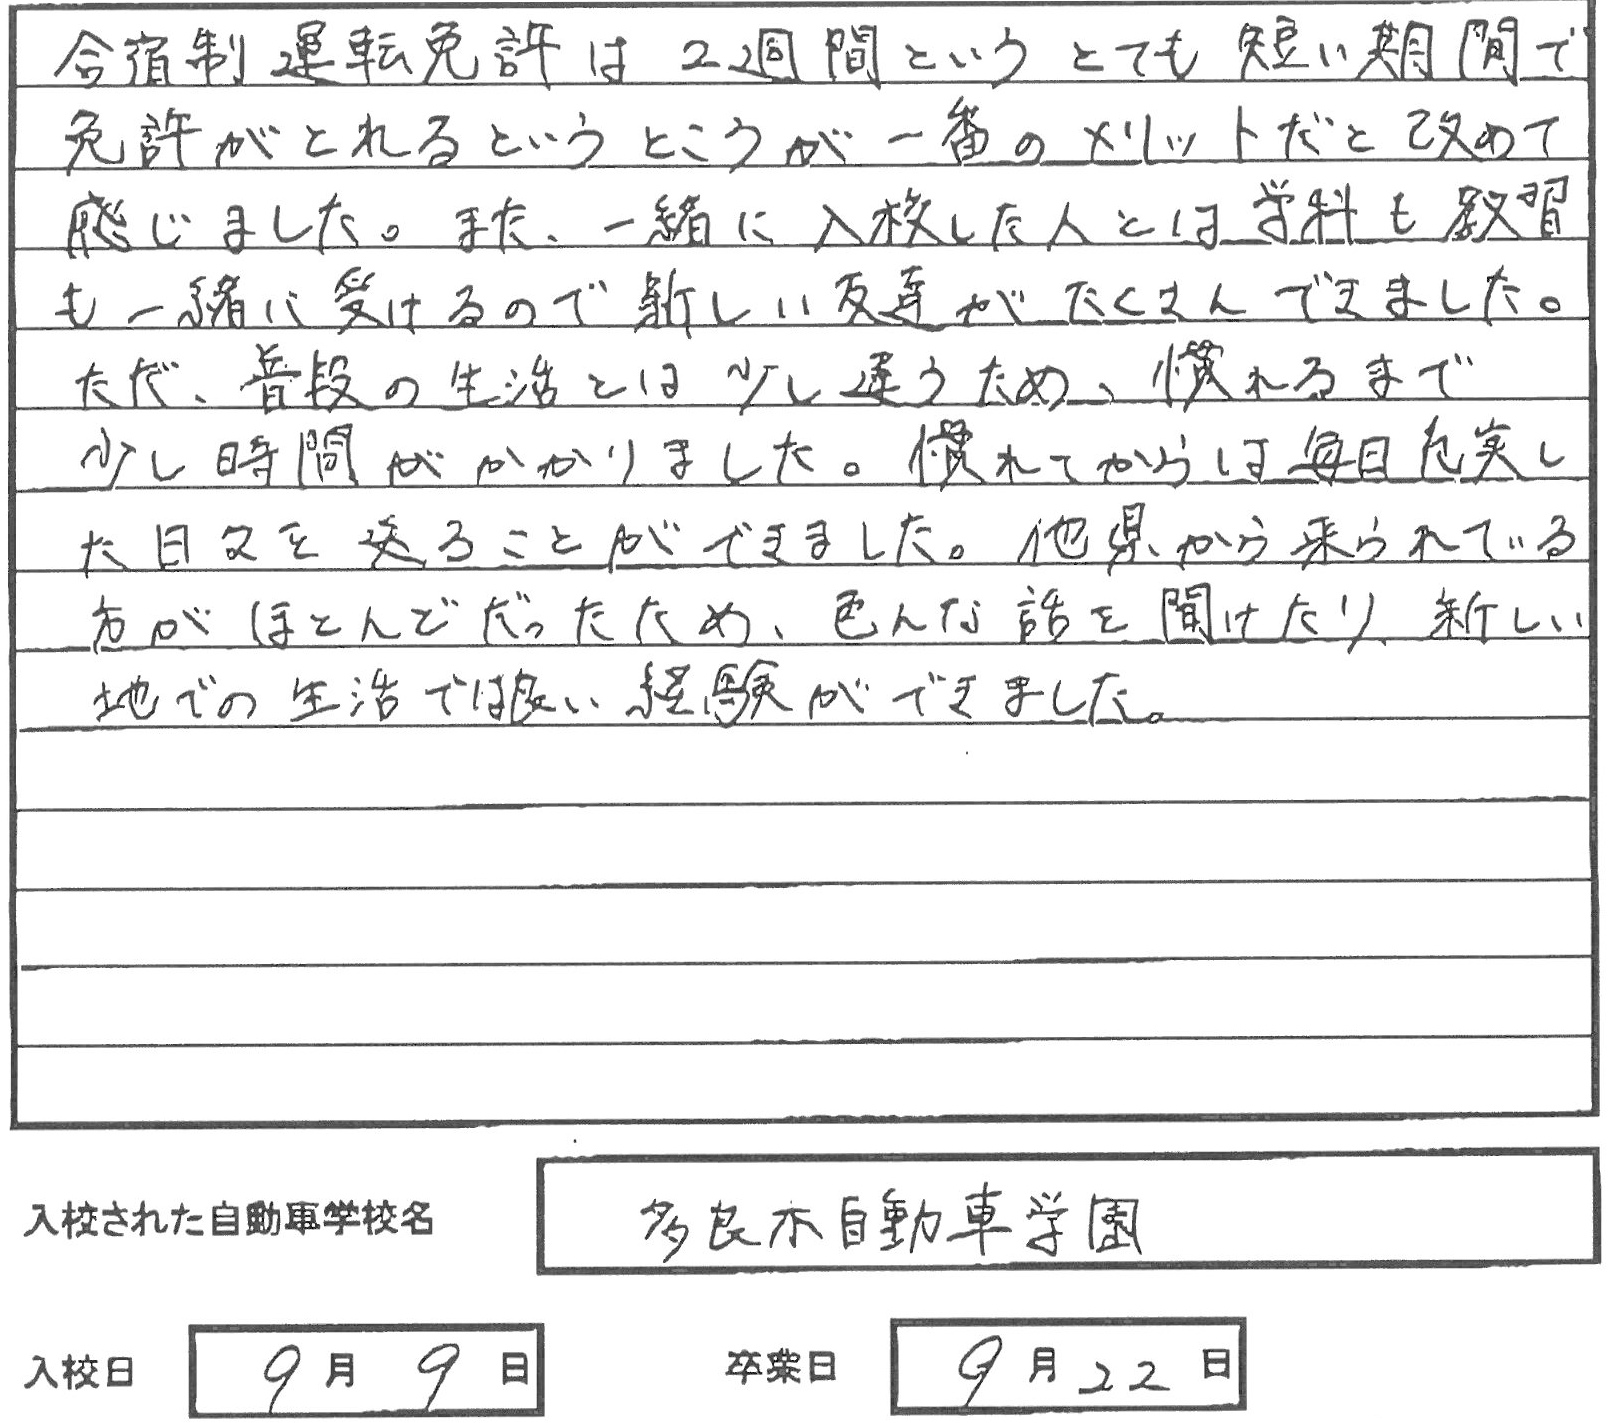 合宿制運転免許は2週間というとても短い期間で
免許がとれるというところが一番のメリットだと改めて
感じました。また、一緒に入校した人とは学科も教習
も一緒に受けるので新しい友達がたくさんできました。
ただ、普段の生活とは少し違うため、慣れるまで
少し時間がかかりました。慣れてからは毎日充実し
た日々を送ることができました。他県から来られている
方がほとんどだったため、色んな話を聞けたり、新しい
地での生活では良い経験ができました。
入校された自動車学校名 多良木自動車学園
入校日 9月9日 卒業日 9月22日